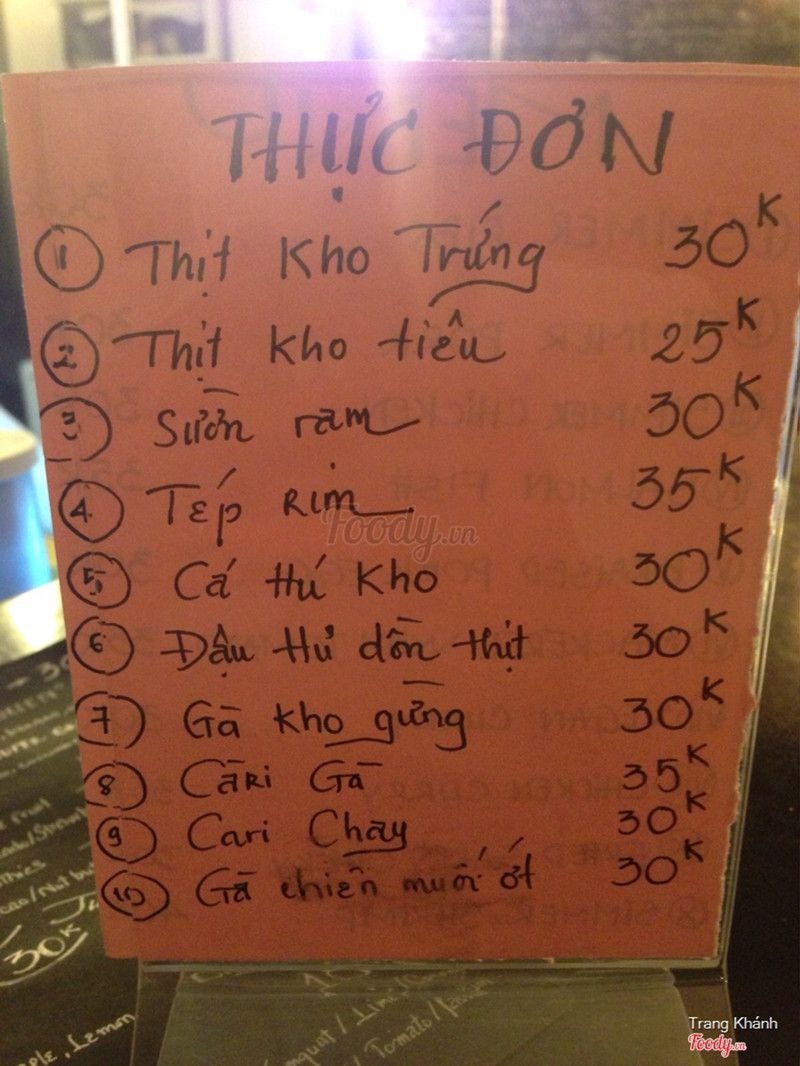 THỰC ĐƠN
1 Thịt Kho Trứng 30K
2 Thịt kho tiêu 25K
3 Sườn ram 30K
4 Tép Rim 35K
5 Cá Hú Kho 30K
6 Đậu Hủ dồn thịt 30K
7 Gà kho gừng 30K
8 Càri Gà 35K
9 Cari Chay 30K
10 Gà chiên muối ớt 30K
Foody.vn
30K
Lemon
Tomato/
Trang Khánh
Foody.vn